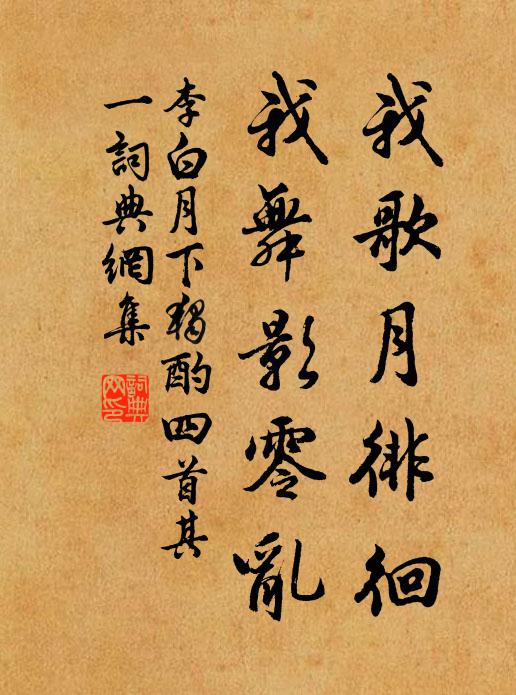 我歌月徘徊
我舞影零亂
李白月下獨酌四首其
一詞典網集
詞典網印